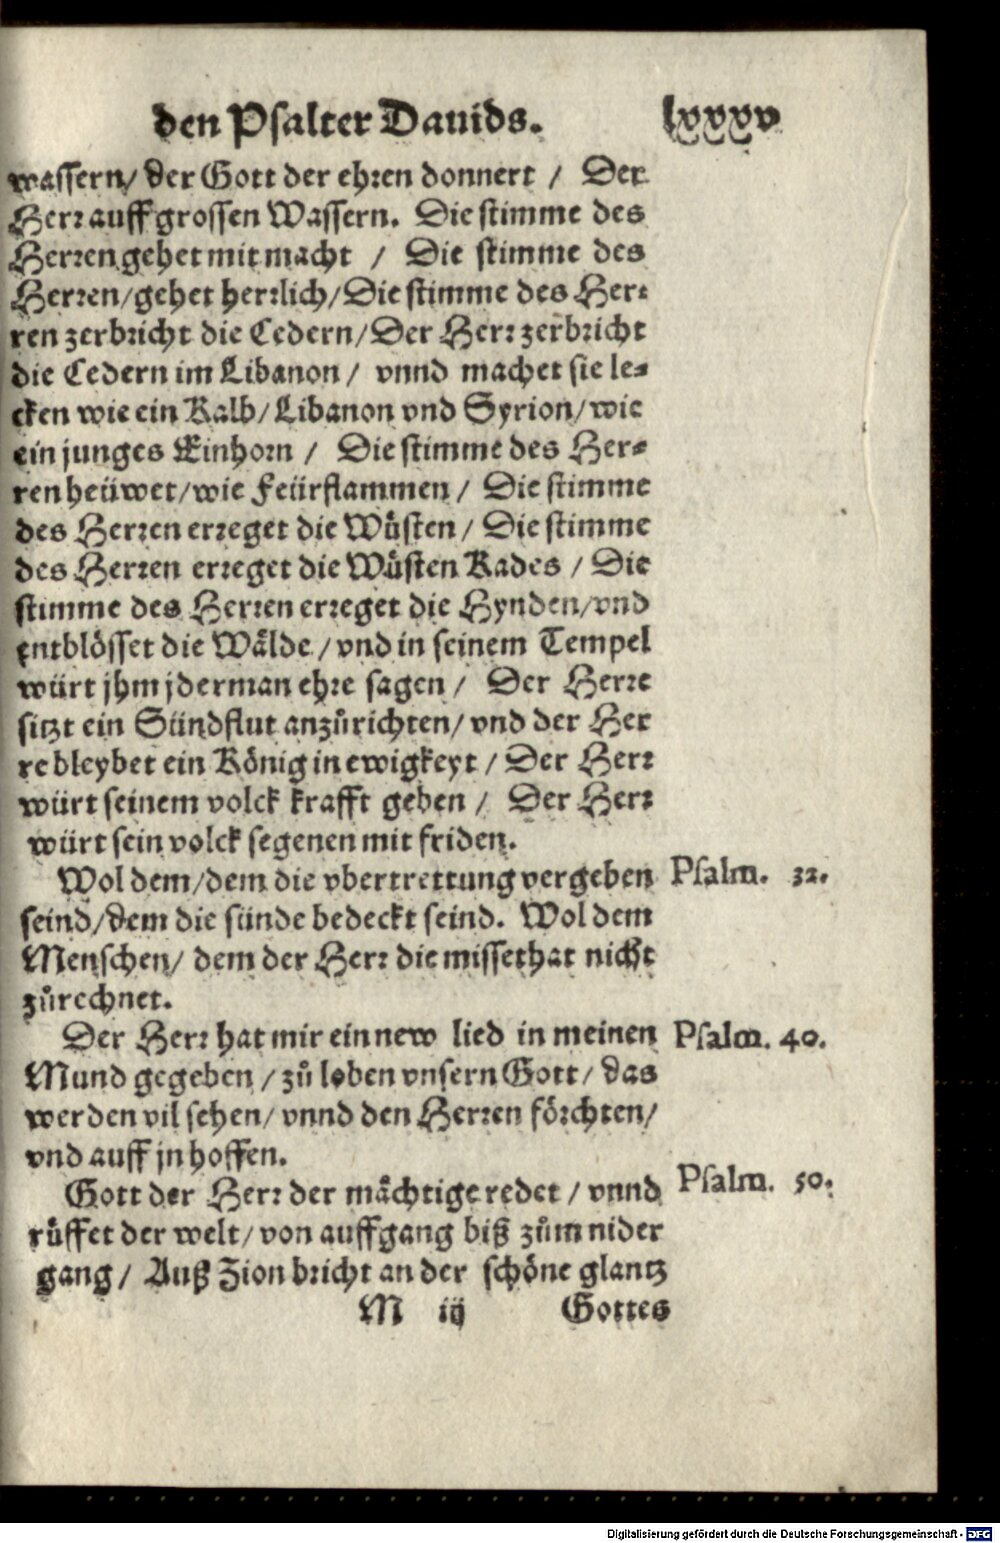 den Psalter Dauids. lxxxv
wassern/ der Gott der ehren donnert / Der
Herr auff grossen Wassern. Die stimme des
Herren gehet mit macht / Die stimme des
Herren/gehet herrlich/Die stimme des Her⸗
ren zerbricht die Cedern/Der Herr zerbricht
die Cedern im Libanon/ vnnd machet sie le⸗
cken wie ein Kalb/Libanon vnd Syrion/wie
ein junges Einhorn / Die stimme des Her⸗
ren heüwet/wie Feürflammen/ Die stimme
des Herren erreget die Wůsten/ Die stimme
des Herren erreget die Wůsten Kades / Die
stimme des Herren erreget die Hynden/vnd
entblösset die Wälde/vnd in seinem Tempel
würt jhm jderman ehre sagen/ Der Herre
sitzt ein Sündflut anzůrichten/vnd der Her
re bleybet ein König in ewigkeyt / Der Herr
würt seinem volck krafft geben / Der Herr
würt sein volck segenen mit friden.
Wol dem/dem die vbertrettung vergeben Psalm. 32.
seind/dem die sünde bedeckt seind. Wol dem
Menschen/ dem der Herr die missethat nicht
zůrechnet.
Der Herr hat mir ein new lied in meinen Psalm. 40.
Mund gegeben/zů loben vnsern Gott/ das
werden vil sehen/vnnd den Herren förchten/
vnd auff jn hoffen.
Gott der Herr der mächtige redet / vnnd Psalm. 50.
růffet der welt/von auffgang biß zům nider
gang/ Auß Zion bricht an der schöne glantz
M iij Gottes
Digitalisierung gefördert durch die Deutsche Forschungsgemeinschaft - DFG